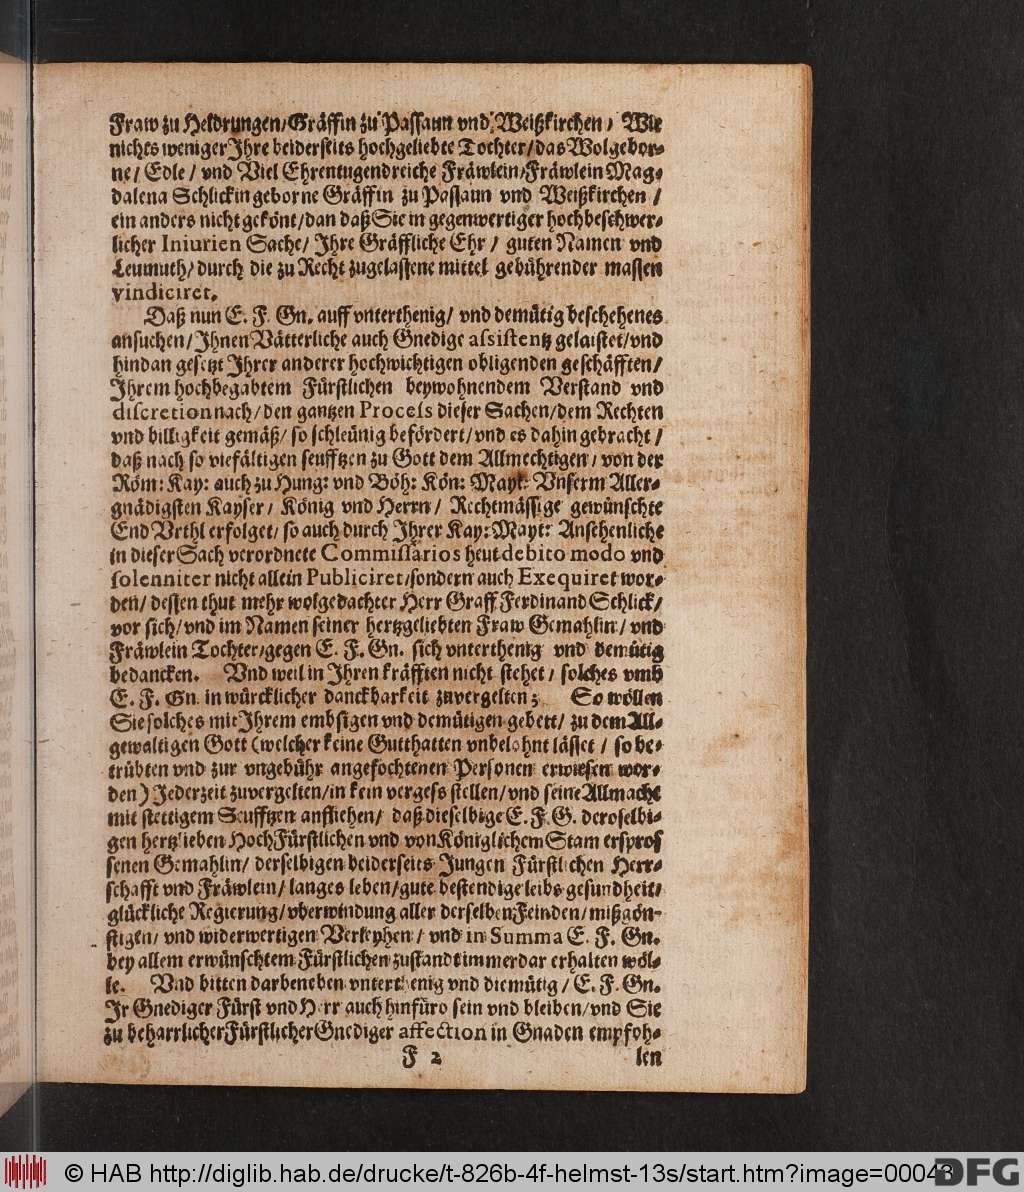 Fraw zu Heldrungen/Gräffin zu Passaun vnd Weißkirchen/ Wie
nichts weniger Ihre beiderseits hochgeliebte Tochter/das Wolgebor-
ne/ Edle/ vnd Viel Ehrentugendreiche Fräwlein/Fräwlein Mag-
dalena Schlickin geborne Gräffin zu Passaun vnd Weißkirchen /
ein anders nicht gekönt/dan daß Sie in gegenwertiger hochbeschwer-
licher Iniurien Sache/ Ihre Gräffliche Ehr/ guten Namen vnd
Leumuth/durch die zu Recht zugelassene mittel gebührender massen
vindiciret.
Daß nun E. F. Gn. auff vnterthenig/ vnd demütig beschehenes
ansuchen/Ihnen Vätterliche auch Gnedige aſsiſtentz gelaistet/vnd
hindan gesetzt Ihrer anderer hochwichtigen obligenden geschäfften/
Ihrem hochbegabtem Fürstlichen beywohnendem Verstand vnd
diſcretion nach/den gantzen Proceſs dieser Sachen/dem Rechten
vnd billigkeit gemäß/ so schleünig befördert/vnd es dahin gebracht/
daß nach so viefältigen seufftzen zu Gott dem Allmechtigen/ von der
Röm: Kay: auch zu Hung: vnd Böh: Kön: Mayt: Vnserm Aller-
gnädigsten Kayser/ König vnd Herrn/ Rechtmässige gewünschte
End Vrthl erfolget/ so auch durch Ihrer Kay: Mayt: Ansehenliche
in dieser Sach verordnete Commiſſarios heut debito modo vnd
ſolenniter nicht allein Publiciret/sondern auch Exequiret wor-
den/ dessen thut mehr wolgedachter Herr Graff Ferdinand Schlick/
vor sich/vnd im Namen seiner hertzgeliebten Fraw Gemahlin/ vnd
Fräwlein Tochter/gegen E. F. Gn. sich vnterthenig vnd demütig
bedancken. Vnd weil in Ihren kräfften nicht stehet/ solches vmb
E. F. Gn. in würcklicher danckbarkeit zuvergelten; So wöllen
Sie solches mit Ihrem embsigen vnd demütigen gebett/ zu dem All-
gewaltigen Gott (welcher keine Gutthatten vnbelohnt lässet/ so be-
trübten vnd zur vngebühr angefochtenen Personen erwiesen wor-
den) Jederzeit zuvergelten/in kein vergess stellen/vnd seine Allmacht
mit stettigem Seufftzen anfliehen/ daß dieselbige E. F. G. deroselbi-
gen hertzlieben HochFürstlichen vnd von Königlichem Stam erspros
senen Gemahlin/ derselbigen beiderseits Jungen Fürstlichen Herr-
schafft vnd Fräwlein/langes leben/gute bestendige leibs gesundheit/
glückliche Regierung/vberwindung aller derselben Feinden/mißgön-
stigen/ vnd widerwertigen Verleyhen/ vnd in Summa E. F. Gn.
bey allem erwünschtem Fürstlichen zustandt immerdar erhalten wöl-
le. Vnd bitten darbeneben vnterthenig vnd diemütig/ E. F. Gn.
Ir Gnediger Fürst vnd Herr auch hinfüro sein vnd bleiben/vnd Sie
zu beharrlicher Fürstlicher Gnediger affection in Gnaden empfoh-
F 2 len
© HAB http://diglib.hab.de/drucke/t-826b-4f-helmst-13s/start.htm?image=00043
DFG